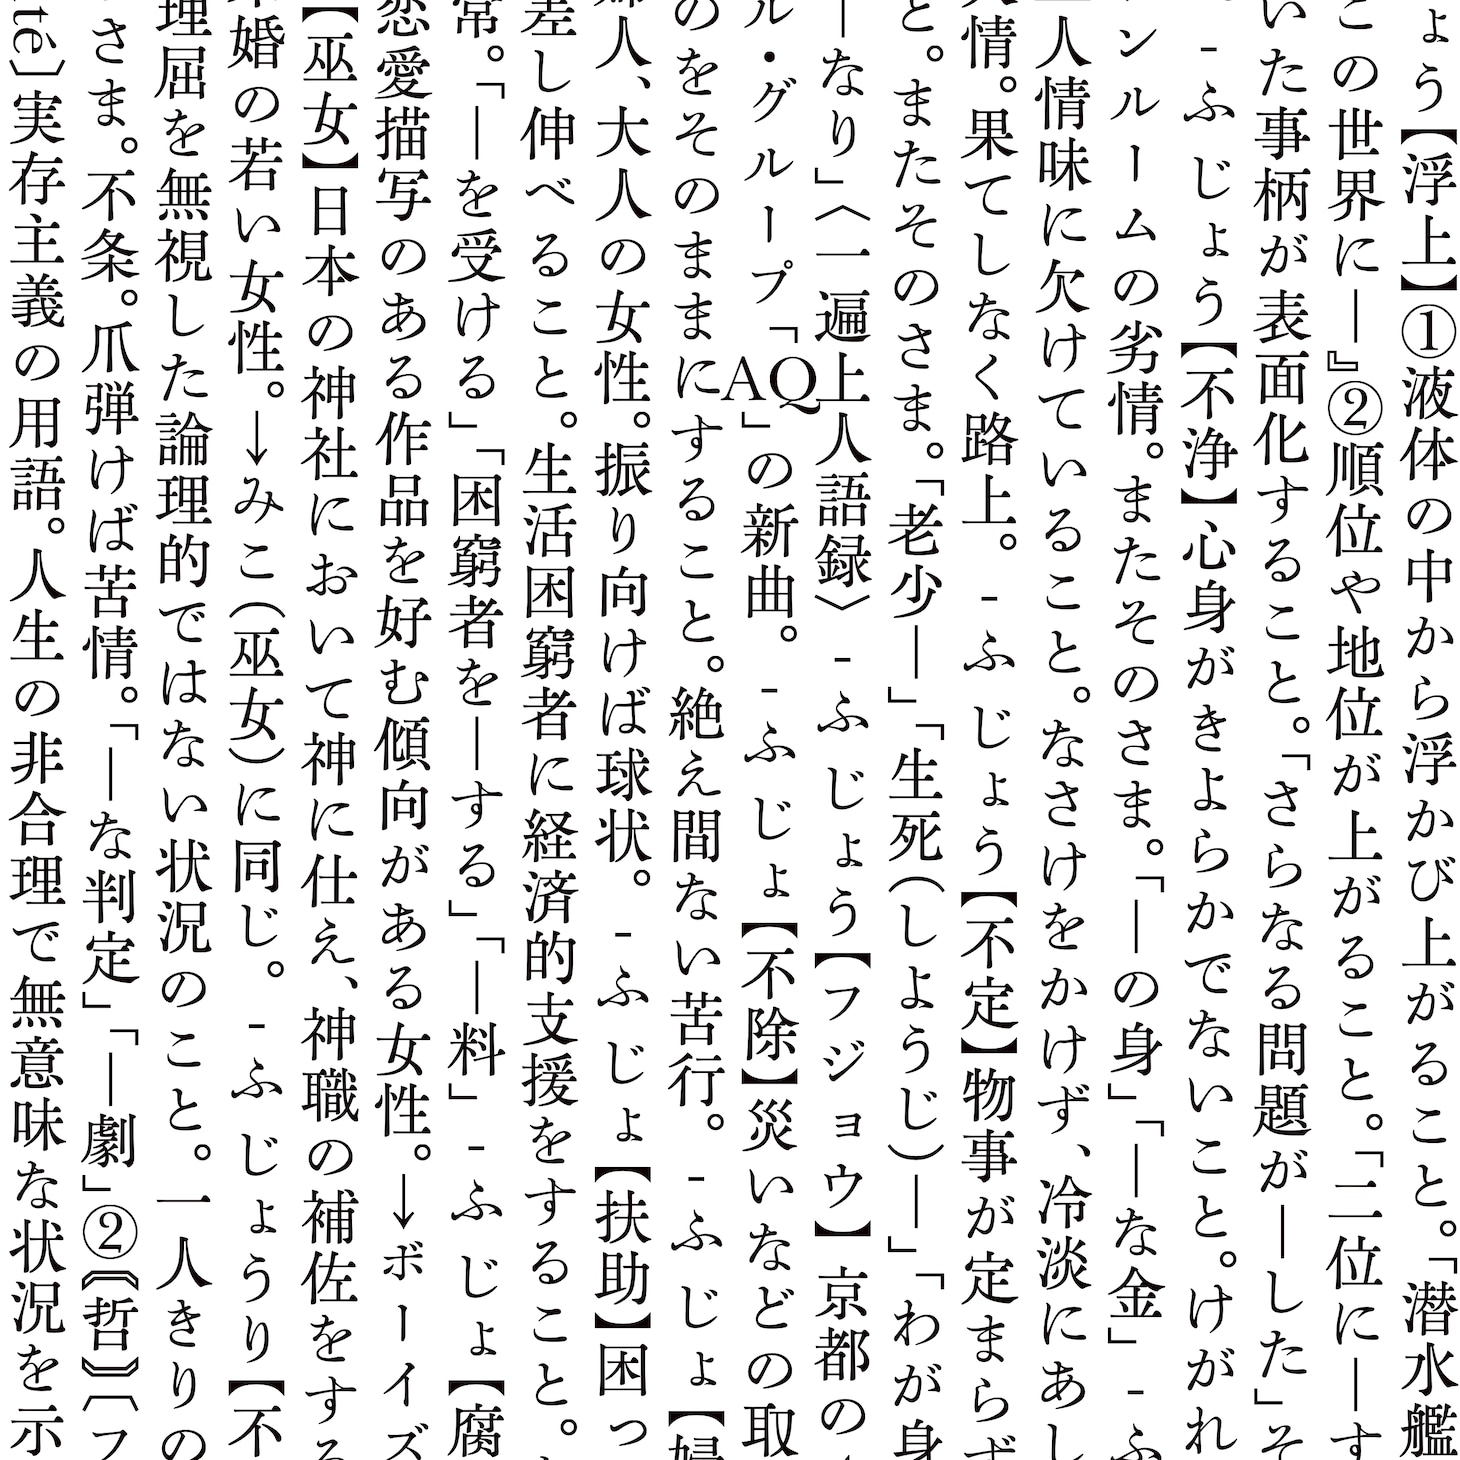 ょう【浮上】①液体の中から浮かび上がること。「潜水艦
この世界に―』②順位や地位が上がること。「二位に―す
いた事柄が表面化すること。「さらなる問題が―した」そ
。 -ふじょう【不浄】心身がきよらかでないこと。けがれ
ンルームの劣情。またそのさま。「―の身」「―な金」 -ふ
人情味に欠けていること。なさけをかけず、冷淡にあし
情。果てしなく路上。 -ふじょう【不定】物事が定まらず
と。またそのさま。「老少―」「生死（しようじ）―」「わが身
―なり」〈一遍上人語録〉 -ふじょう【フジョウ】京都の
ル・グループ「AQ」の新曲。 -ふじょ【不除】災いなどの取
のをそのままにすること。絶え間ない苦行。 -ふじょ【婦
婦人、大人の女性。振り向けば球状。 -ふじょ【扶助】困っ
差し伸べること。生活困窮者に経済的支援をすること。
常。「―を受ける」「困窮者を―する」「―料」 -ふじょ【腐
恋愛描写のある作品を好む傾向がある女性。→ボーイズ
【巫女】日本の神社において神に仕え、神職の補佐をする
婚の若い女性。→みこ（巫女）に同じ。 -ふじょうり【不
理屈を無視した論理的ではない状況のこと。一人きりの
さま。不条。爪弾けば苦情。「―な判定」「―劇」②〘哲〙〔フ
té〕実存主義の用語。人生の非合理で無意味な状況を示